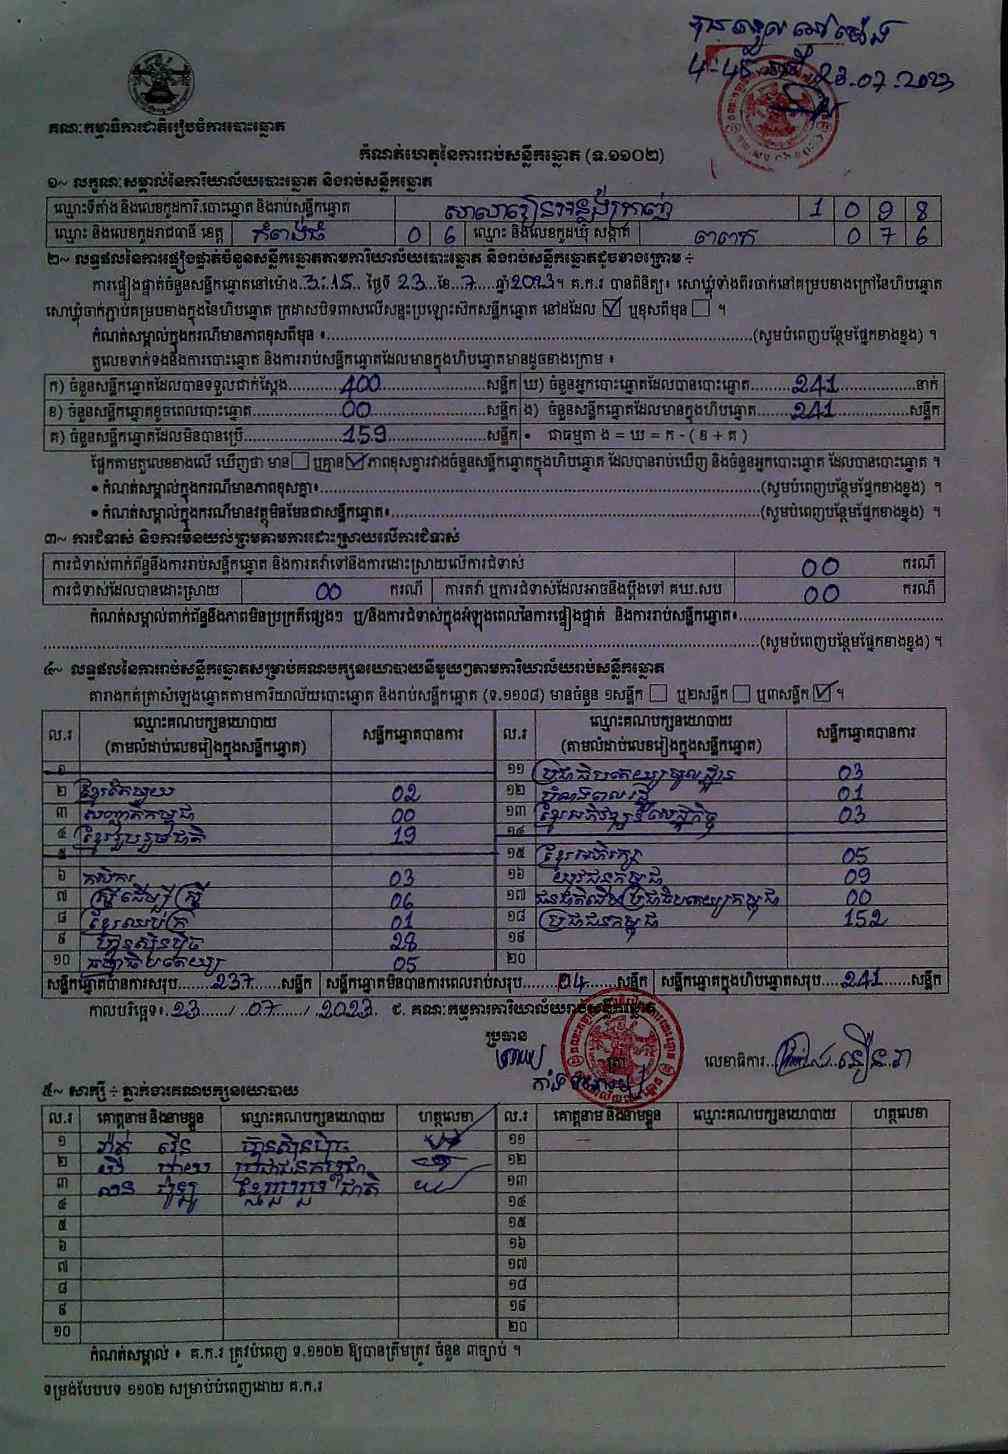 4-45 23.07.2023
គណៈកម្មាធិការជាតិរៀបចំការបោះឆ្នោត
កំណត់ហេតុនៃការរាប់សន្លឹកឆ្នោត (ទ.១១០២)
១~ លក្ខណៈសម្គាល់នៃការិយាល័យបោះឆ្នោត និងរាប់សន្លឹកឆ្នោត
ឈ្មោះទីតាំង និងលេខកូដការិ.បោះឆ្នោត និងរាប់សន្លឹកឆ្នោត សាលារៀន 1 0 9 8
ឈ្មោះ និងលេខកូដរាជធានី ខេត្ត កំពង់ធំ 0 6 ឈ្មោះ និងលេខកូដឃុំ សង្កាត់ ពពក 0 7 6
២~ លទ្ធផលនៃការផ្ទៀងផ្ទាត់ចំនួនសន្លឹកឆ្នោតតាមការិយាល័យបោះឆ្នោត និងរាប់សន្លឹកឆ្នោតដូចខាងក្រោម ÷
ការផ្ទៀងផ្ទាត់ចំនួនសន្លឹកឆ្នោតនៅម៉ោង..3:15.. ថ្ងៃទី 23...ខែ...7.....ឆ្នាំ2023។ គ.ក.រ បានពិនិត្យ៖ សោឃ្លុំទាំងពីរចាក់នៅគម្របខាងក្រៅនៃហិបឆ្នោត
សោឃ្លុំចាក់ភ្ជាប់គម្របខាងក្នុងនៃហិបឆ្នោត ក្រដាសបិទពាសលើសន្ទះប្រឡោះសិកសន្លឹកឆ្នោត នៅដដែល ☑ ឬខុសពីមុន ☐ ។
កំណត់សម្គាល់ក្នុងករណីមានភាពខុសពីមុន ៖...(សូមបំពេញបន្ថែមផ្នែកខាងខ្នង) ។
តួលេខទាក់ទងនឹងការបោះឆ្នោត និងការរាប់សន្លឹកឆ្នោតដែលមានក្នុងហិបឆ្នោតមានដូចខាងក្រោម ៖
ក) ចំនួនសន្លឹកឆ្នោតដែលបានទទួលជាក់ស្តែង...400...សន្លឹក ឃ) ចំនួនអ្នកបោះឆ្នោតដែលបានបោះឆ្នោត...241...នាក់
ខ) ចំនួនសន្លឹកឆ្នោតខូចពេលបោះឆ្នោត...00...សន្លឹក ង) ចំនួនសន្លឹកឆ្នោតដែលមានក្នុងហិបឆ្នោត...241...សន្លឹក
គ) ចំនួនសន្លឹកឆ្នោតដែលមិនបានប្រើ...159...សន្លឹក • ជាធម្មតា ង = ឃ = ក - ( ខ + គ )
ផ្អែកតាមតួលេខខាងលើ ឃើញថា មាន ☐ ឬគ្មាន ☑ ភាពខុសគ្នារវាងចំនួនសន្លឹកឆ្នោតក្នុងហិបឆ្នោត ដែលបានរាប់ឃើញ និងចំនួនអ្នកបោះឆ្នោត ដែលបានបោះឆ្នោត ។
• កំណត់សម្គាល់ក្នុងករណីមានភាពខុសគ្នា៖...(សូមបំពេញបន្ថែមផ្នែកខាងខ្នង) ។
• កំណត់សម្គាល់ក្នុងករណីមានវត្ថុមិនមែនជាសន្លឹកឆ្នោត៖...(សូមបំពេញបន្ថែមផ្នែកខាងខ្នង) ។
៣~ ការជំទាស់ និងការមិនយល់ព្រមតាមការដោះស្រាយលើការជំទាស់
ការជំទាស់ពាក់ព័ន្ធនឹងការរាប់សន្លឹកឆ្នោត និងការតវ៉ាទៅនឹងការដោះស្រាយលើការជំទាស់ 00 ករណី
ការជំទាស់ដែលបានដោះស្រាយ 00 ករណី ការតវ៉ា ឬការជំទាស់ដែលអាចនឹងប្តឹងទៅ គឃ.សប 00 ករណី
កំណត់សម្គាល់ពាក់ព័ន្ធនឹងភាពមិនប្រក្រតីផ្សេងៗ ឬ/និងការជំទាស់ក្នុងអំឡុងពេលនៃការផ្ទៀងផ្ទាត់ និងការរាប់សន្លឹកឆ្នោត៖...
...(សូមបំពេញបន្ថែមផ្នែកខាងខ្នង) ។
៤~ លទ្ធផលនៃការរាប់សន្លឹកឆ្នោតសម្រាប់គណបក្សនយោបាយនីមួយៗតាមការិយាល័យរាប់សន្លឹកឆ្នោត
តារាងកត់ត្រាសំឡេងឆ្នោតតាមការិយាល័យបោះឆ្នោត និងរាប់សន្លឹកឆ្នោត (ទ.១១០៨) មានចំនួន ១សន្លឹក ☐ ឬ២សន្លឹក ☐ ឬ៣សន្លឹក ☑ ។
ល.រ ឈ្មោះគណបក្សនយោបាយ (តាមលំដាប់លេខរៀងក្នុងសន្លឹកឆ្នោត) សន្លឹកឆ្នោតបានការ ល.រ ឈ្មោះគណបក្សនយោបាយ (តាមលំដាប់លេខរៀងក្នុងសន្លឹកឆ្នោត) សន្លឹកឆ្នោតបានការ
១ ១១ ប្រជាធិបតេយ្យមូលដ្ឋាន 03
២ ខ្មែរតែមួយ 02 ១២ បំណងពលរដ្ឋ 01
៣ សញ្ជាតិកម្ពុជា 00 ១៣ ខ្មែរអភិវឌ្ឍន៍សេដ្ឋកិច្ច 03
៤ ខ្មែររួបរួមជាតិ 19 ១៤
៥ ១៥ ខ្មែរអភិរក្ស 05
៦ កសិករ 03 ១៦ យុវជនកម្ពុជា 09
៧ ស្ត្រីដើម្បីស្ត្រី 06 ១៧ ជនជាតិដើមប្រជាធិបតេយ្យកម្ពុជា 00
៨ ខ្មែរឈប់ក្រ 01 ១៨ ប្រជាជនកម្ពុជា 152
៩ ហ៊្វុនស៊ិនប៉ិច 28 ១៩
១០ ធម្មាធិបតេយ្យ 05 ២០
សន្លឹកឆ្នោតបានការសរុប...237...សន្លឹក សន្លឹកឆ្នោតមិនបានការពេលរាប់សរុប...04...សន្លឹក សន្លឹកឆ្នោតក្នុងហិបឆ្នោតសរុប...241...សន្លឹក
កាលបរិច្ឆេទ៖.23....../..07....../..2023. ជ. គណៈកម្មការការិយាល័យរាប់សន្លឹកឆ្នោត
ប្រធាន
លេខាធិការ...
៥~ សាក្សី ÷ ភ្នាក់ងារគណបក្សនយោបាយ
ល.រ គោត្តនាម និងនាមខ្លួន ឈ្មោះគណបក្សនយោបាយ ហត្ថលេខា ល.រ គោត្តនាម និងនាមខ្លួន ឈ្មោះគណបក្សនយោបាយ ហត្ថលេខា
១ ហ៊្វុនស៊ិនប៉ិច ១១
២ ប្រជាជនកម្ពុជា ១២
៣ ខ្មែររួបរួមជាតិ ១៣
៤ ១៤
៥ ១៥
៦ ១៦
៧ ១៧
៨ ១៨
៩ ១៩
១០ ២០
កំណត់សម្គាល់ ៖ គ.ក.រ ត្រូវបំពេញ ទ.១១០២ ឱ្យបានត្រឹមត្រូវ ចំនួន ៣ច្បាប់ ។
ទម្រង់បែបបទ ១១០២ សម្រាប់បំពេញដោយ គ.ក.រ